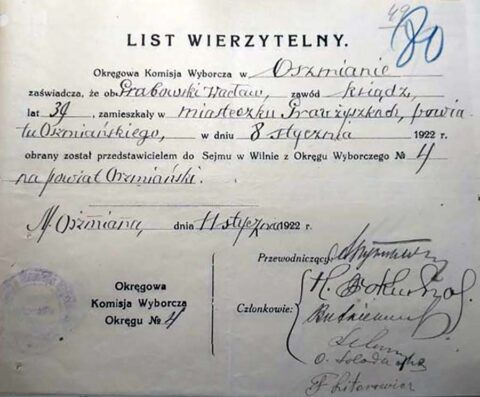 49
80
LIST WIERZYTELNY.
Okręgowa Komisja Wyborcza w Oszmianie
zaświadcza, że ob. Grabowski Wacław, zawód ksiądz,
lat 39, zamieszkały w miasteczku Graużyszkach, powia
tu Oszmiańskiego, w dniu 8 stycznia 1922 r.
obrany został przedstawicielem do Sejmu w Wilnie z Okręgu Wyborczego № 4
na powiat Oszmiański.
M. Oszmiana, dnia 11 stycznia 1922 r.
Przewodniczący
Okręgowa
Komisja Wyborcza
Okręgu № 4
Członkowie: